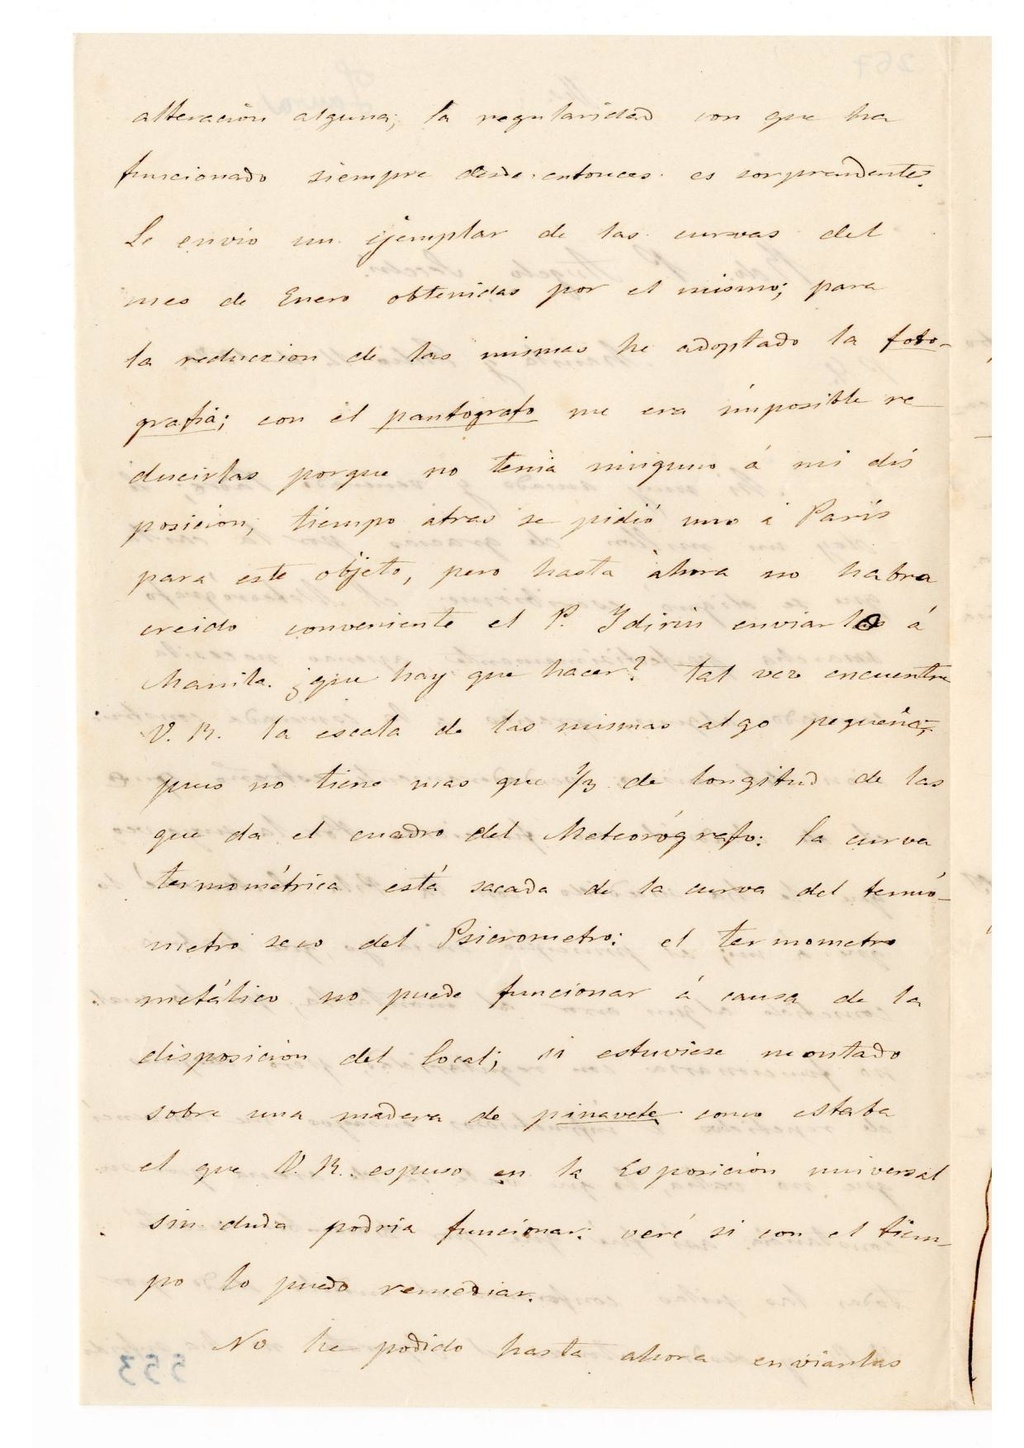 alteración alguna; la regularidad con que ha
funcionado siempre desde entonces es sorprendente.
Le envio un ejemplar de las curvas del
mes de Enero obtenidas por el mismo; para
la reduccion de las mismas he adoptado la foto-
grafía; con el pantógrafo me era imposible re
ducirlas porque no tenia ninguno á mi dis
posicion; tiempo atras se pidió uno á París
para este objeto, pero hasta ahora no habra
creido conveniente el P. enviarlo á
Manila. ¿que hay que hacer? Tal vez encuentre
V. R. la escala de las mismas algo pequeña;
pues no tiene mas que 1/3 de longitud de las
que da el cuadro del Meteorógrafo: la curva
termométrica está sacada de la curva del termó-
metro seco del Psicrometro: el termometro
metálico no puede funcionar á causa de la
disposicion del local; si estuviese montado
sobre una madera de pinavete como estaba
el que V. R. espuso en la Esposición universal
sin duda podria funcionar: veré si con el tiem-
po lo puedo remediar.
No he podido hasta ahora enviarlas
553